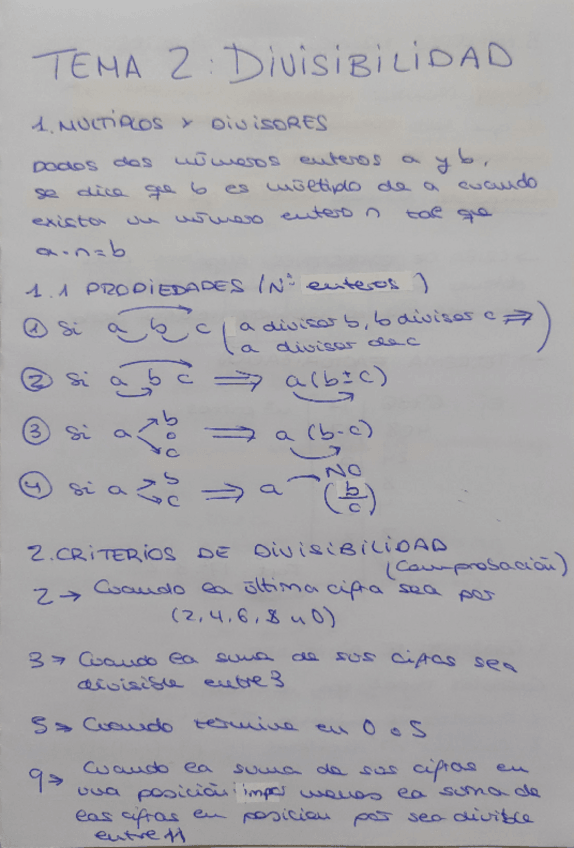 TEMA 2: DIVISIBILIDAD
1. MULTIPLOS Y DIVISORES
Dados dos números enteros a y b,
se dice que b es múltiplo de a cuando
exista un número entero n tal que
a·n=b
1.1 PROPIEDADES (Nº enteros)
① Si a b c (a divisor b, b divisor c ⇒
a divisor de c)
② Si a b c ⟹ a (b±c)
③ Si a b o c ⟹ a (b·c)
④ Si a b c ⟹ a NO (b/c)
2. CRITERIOS DE DIVISIBILIDAD
(Comprobación)
2 → Cuando la última cifra sea par
(2, 4, 6, 8 u 0)
3 → Cuando la suma de sus cifras sea
divisible entre 3
5 → Cuando termine en 0 o 5
9 → Cuando la suma de sus cifras en
una posición impar menos la suma de
las cifras en posicion par sea divisble
entre 11